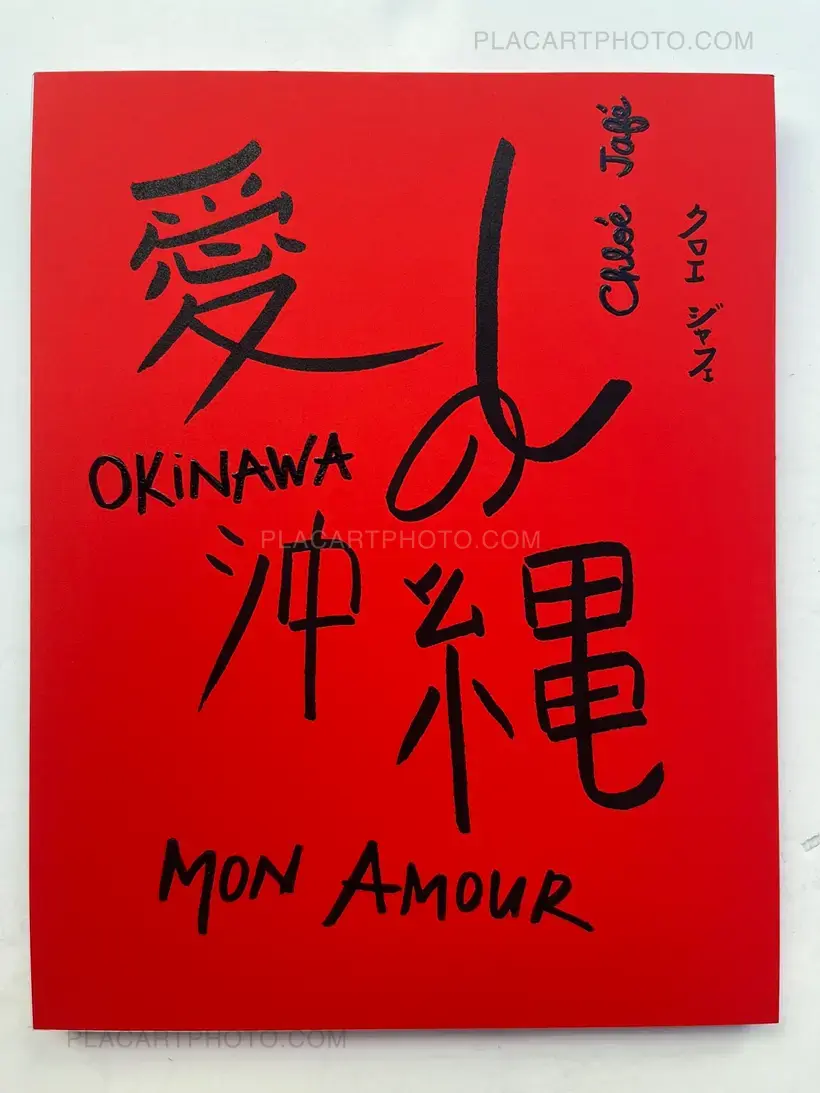 PLACARTPHOTO.COM
Chloé Jafé
クロエ ジャフェ
愛しの
OKiNAWA
PLACARTPHOTO.COM
沖縄
MON AMOUR
PLACARTPHOTO.COM